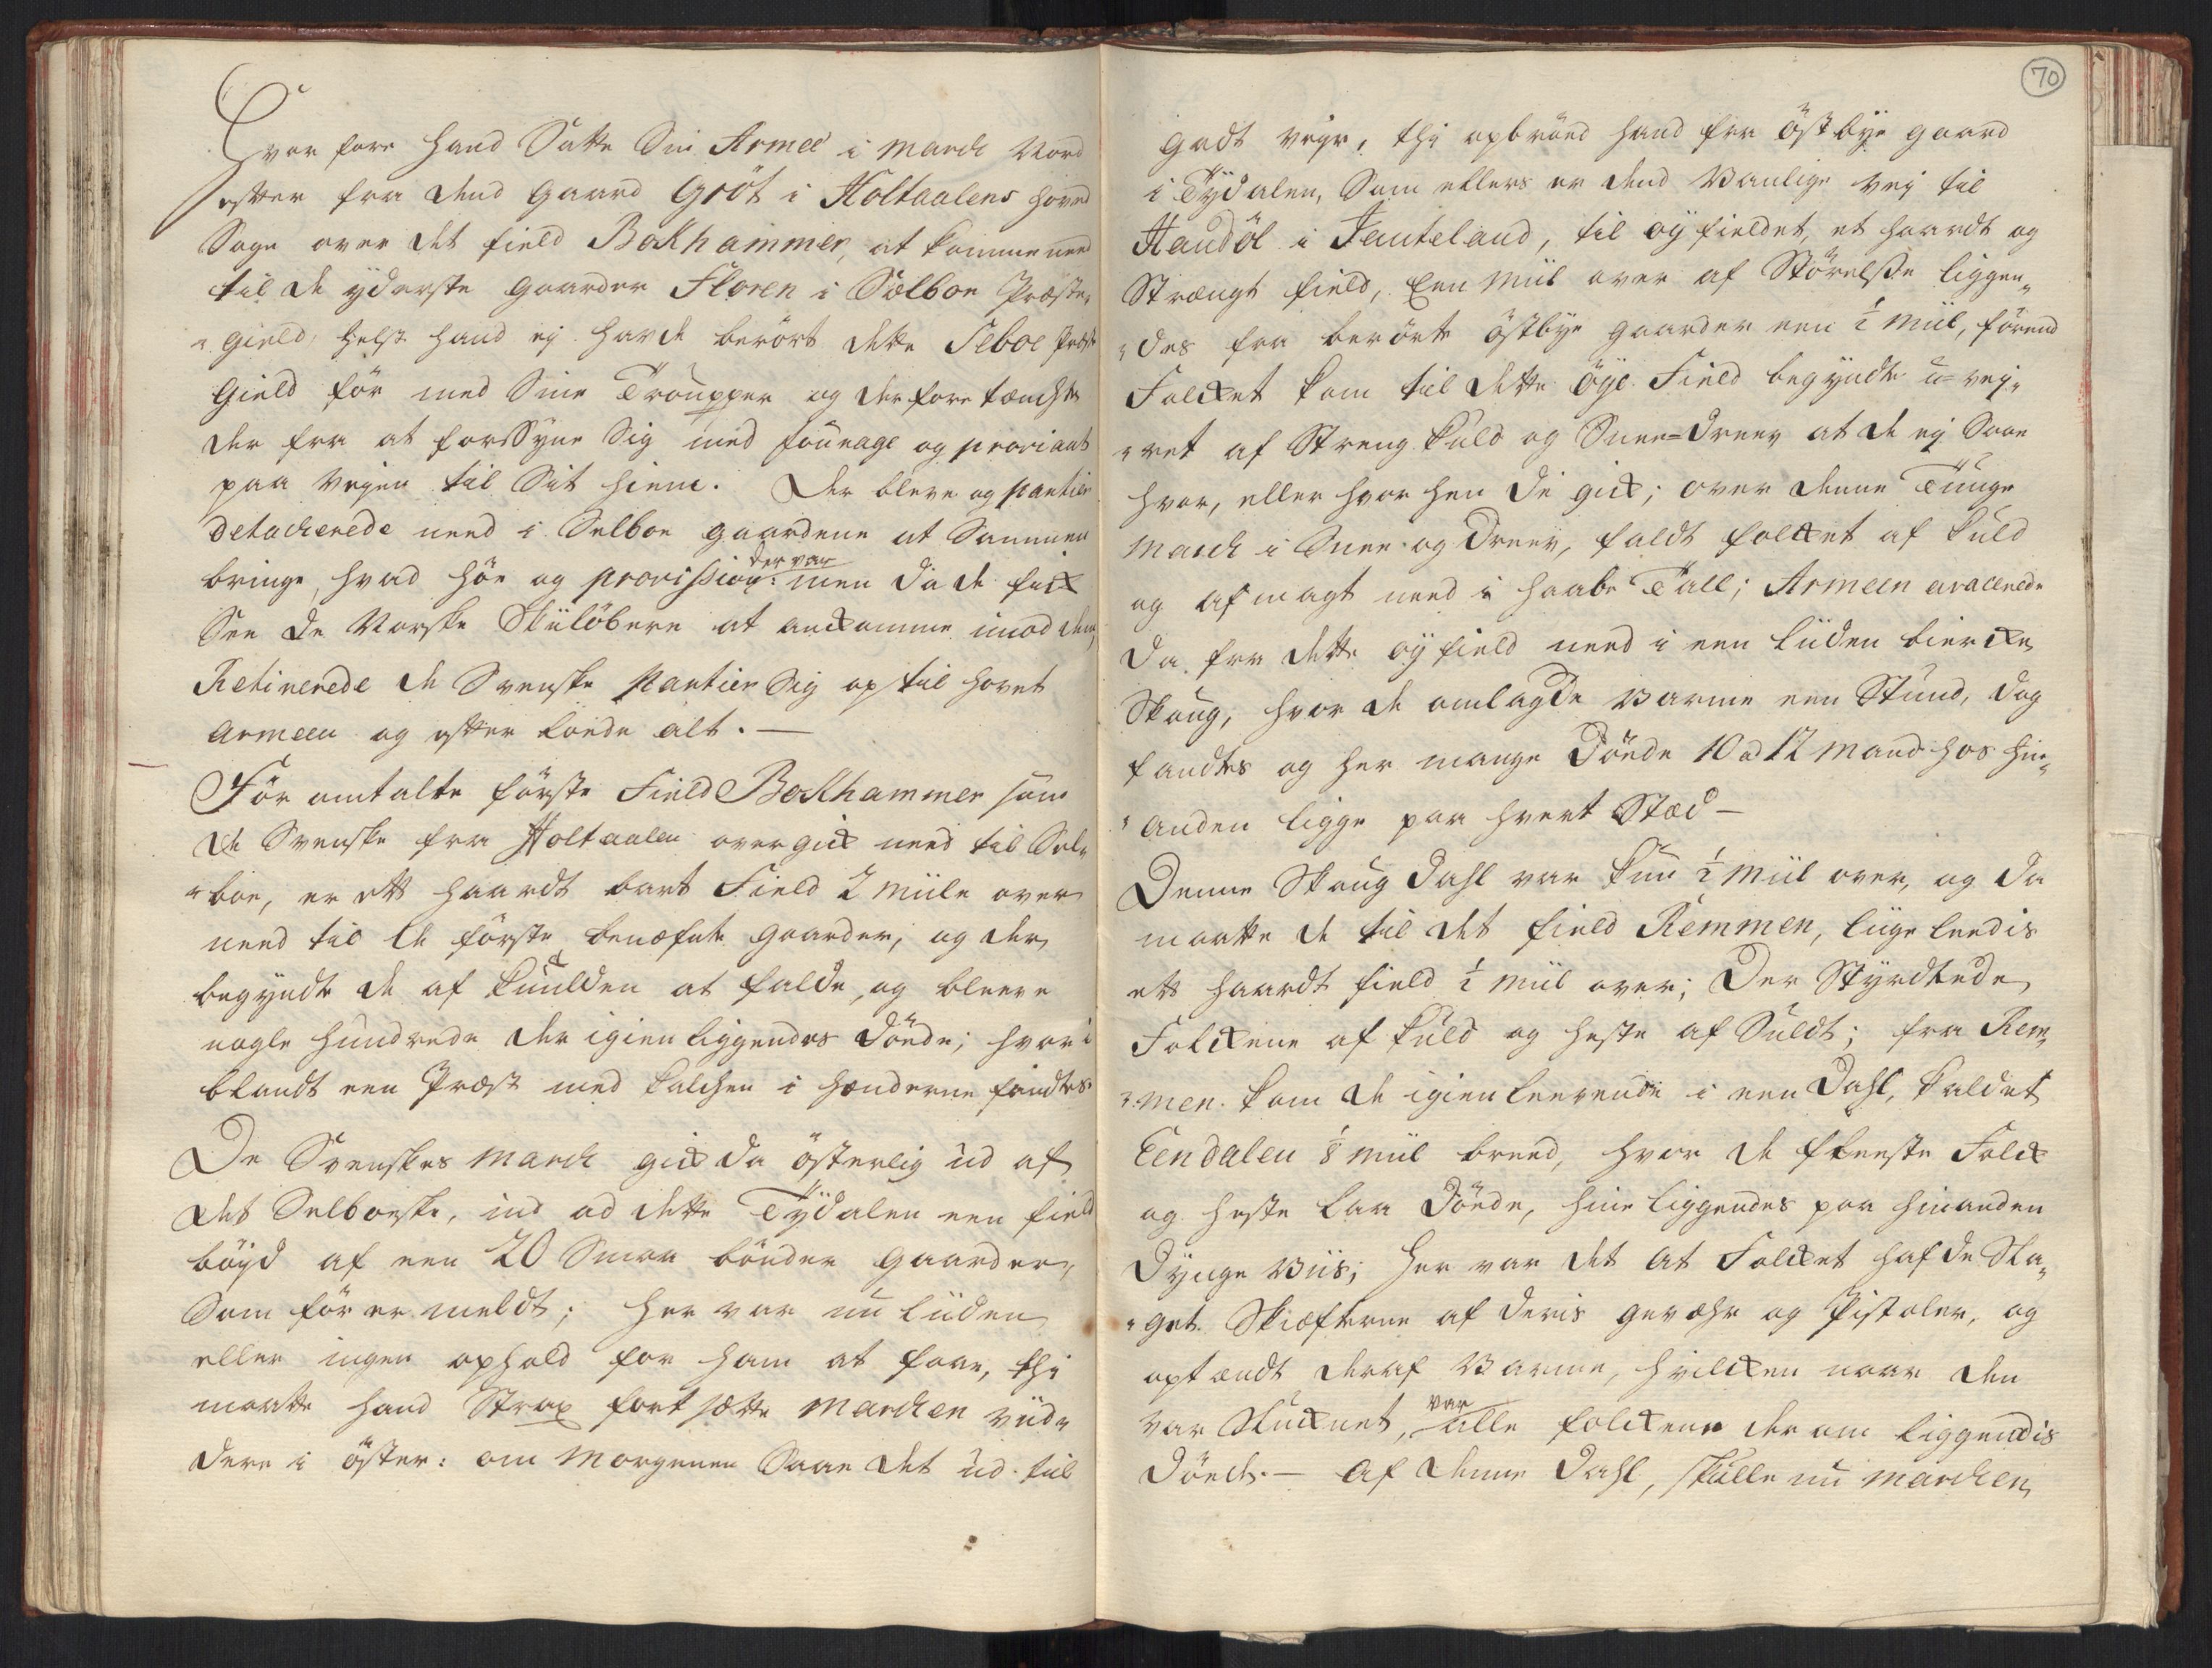 Hvor fore hand Satte Sin Armeé i March Nord
oster fra dend Gaard Gröt i Holtaalens hoved
Sogn over det field Bokhammer, at komme need
til de yderste gaarder Floren i Sælboe Præste„
„gield, helst hand ej hafde berört dette Selboe Præste
Gield för med Sine Troupper og derfore tænchte
der fra at forSyne Sig med fourage og proviant
paa Veyen til Sit hiem. Der bleve og Partier
detacherede need i Selboe gaardene at Sammen
bringe, hvad höe og provission: der var men da de fick
See de Norske Skiilöbere at anckomme imod dem,
Retirerede de Svenske Partier Sig op til hovet
Armeen og efter loede alt. —
För omtalte förste Field Bokhammer som
de Svenske fra Holtaalen overgick need til Sel„
„boe, er ett haardt bart Field 2 Miile over
need til de förste benæfnte gaarder, og der
begyndte de af kuulden at falde, og bleeve
nogle hundrede der igien liggendes döede; hvor i
blandt een Præst med kalchen i hænderne fandtes.
De Svenskes March gick da österlig ud af
det Selboeske, ind ad dette Tÿdalen een field
böÿd af een 20 Smaa bönder gaarder,
Som för er meldt; her var nu liiden
eller ingen ophold for ham at faae, thi
maatte hand Strax fortsætte Marchen viid„
dere i öster: om Morgenen Saae det ud til
70
Godt veyr, thi opbröed hand fra östbÿe gaard
i Tÿdalen, Som ellers er dend Vanlige Vej til
Handöl i Jemteland, til oÿfieldet, et haardt og
Strængt field, Een Miil over af Störelsse liggen„
„des fra berörte östbÿe gaarder een ½ Miil, förend
Folcket kom til dette öÿe Field begyndte u=vej„
„ret af Streng kuld og Snee=dreev at de ej Saae
hvor, eller hvor hen de gick; over denne Tunge
March i Snee og dreev, faldt folcket af kuld
og afmagt need i haabe Tall; Armeen avancerede
da fra dette oÿfield need i een liiden biercke
Skoug, hvor de omlagde Varme een Stund, dog
fandtes og her mange Döede 10 a 12 Mand hos hin„
„anden ligge paa hvert Stæd —
Denne Skoug Dahl var kun ½ Miil over, og da
maatte de til det field Remmen, liige leedis
ett haardt field ½ Miil over; Der Styrdtede
Folckene af kuld og heste af Suldt; fra Rem„
„men kom de igien leevende i een Dahl, kaldet
Eendalen ⅛ Miil breed, hvor de fleeste Folck
og heste laa Döede, hine liggendes paa hinanden
Dÿnge Viis; her var det at Folcket hafde Sla„
„get Skiæfterne af deris gevæhr og Pistoler, og
optændt deraf Varme, hvilcken naar den
var Slucknet, var alle folckene der om liggendis
Döede. — Af denne Dahl, skulle nu Marchen